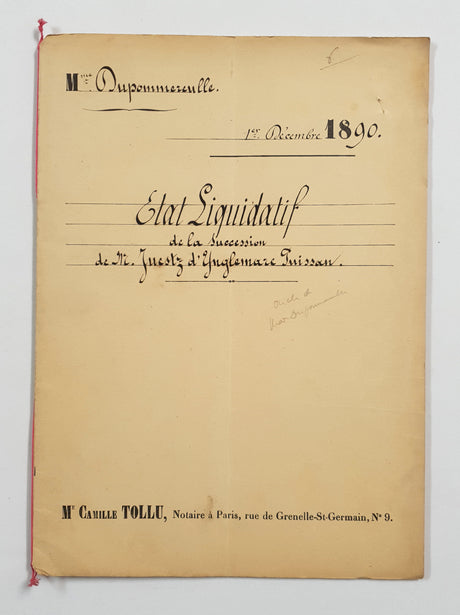 Mme Dupommereulle.
1er Décembre 1890.
Etat Liquidatif
de la Succession
de M. Juestz d'Ynglemare Puissan.
Oncle de
Mme Dupommereulle
Me CAMILLE TOLLU, Notaire à Paris, rue de Grenelle-St-Germain, No 9.